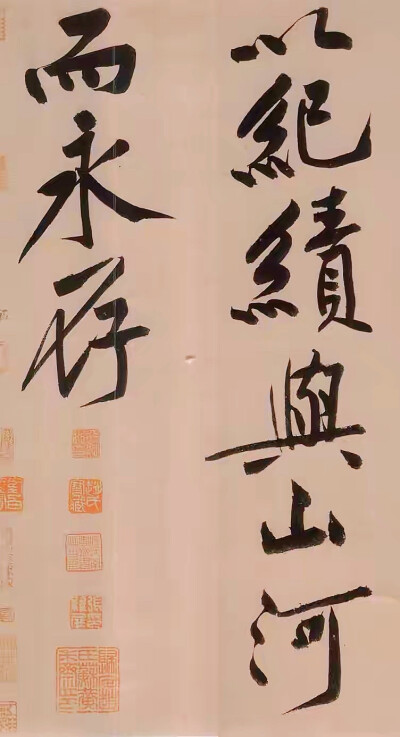 以紀績與山河
而永存